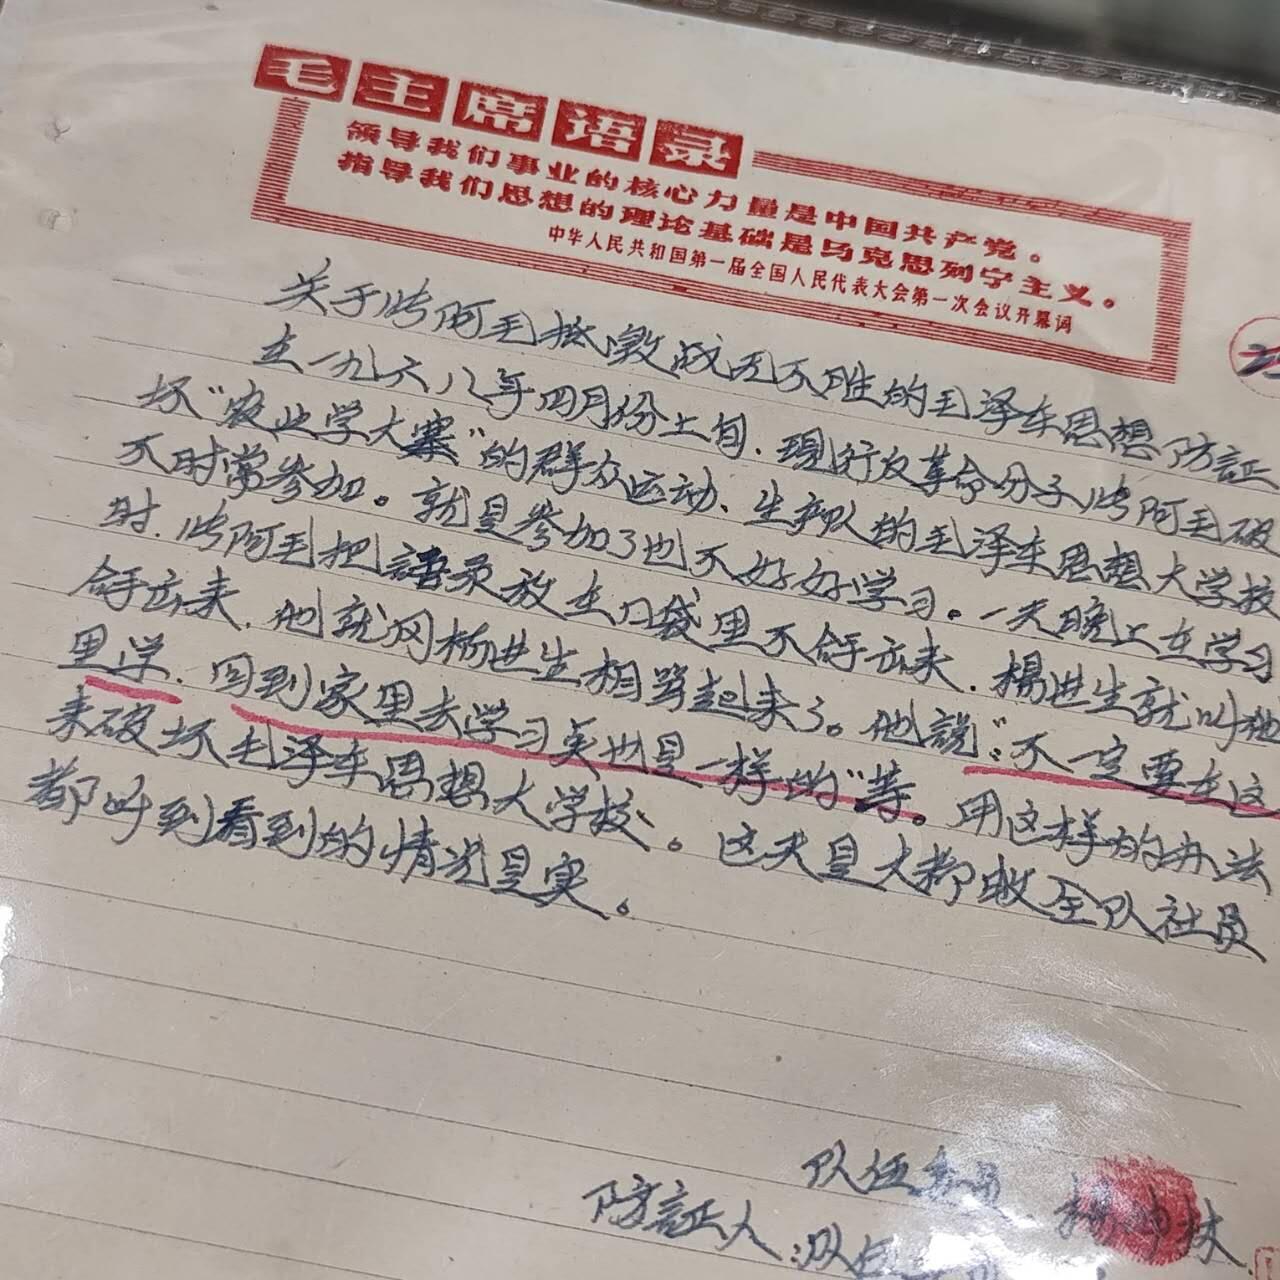 毛主席语录
领导我们事业的核心力量是中国共产党。
指导我们思想的理论基础是马克思列宁主义。
中华人民共和国第一届全国人民代表大会第一次会议开幕词
关于阿毛抵敌战无不胜的毛泽东思想防証
在一九六八年四月份上旬.现行反革命分子阿毛破
坏“农业学大寨”的群众运动、生产队的毛泽东思想大学校
不时常参加。就是参加了也不好好学习。一天晚上在学习
时.阿毛把語录放在口袋里不拿出来.楊进生就叫他
拿出来.他就同杨进生相骂起来了。他說：“不一定要在这
里学.回到家里去学习英也是一样的”等。用这样的办法
来破坏毛泽东思想大学校。这天是大部收全队社员
都听到看到的情况是实。
队伍
防証人：队
林